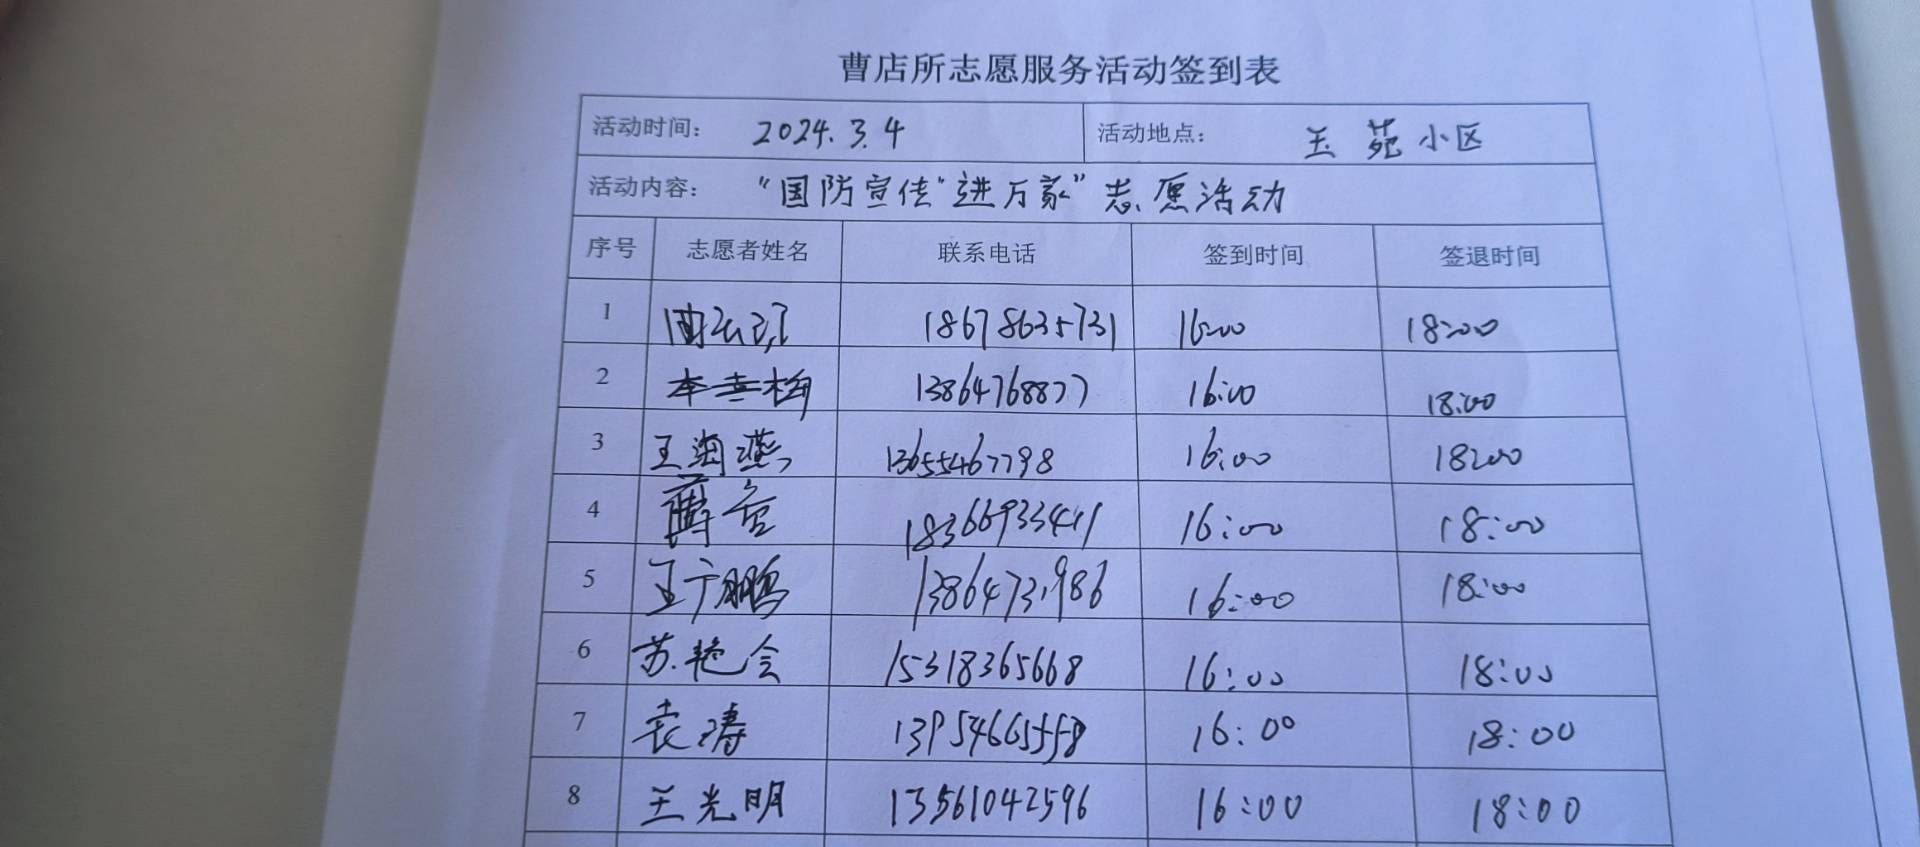 曹店所志愿服务活动签到表
活动时间： 2024.3.4 活动地点： 玉苑小区
活动内容： “国防宣传“进万家”志愿活动
序号 志愿者姓名 联系电话 签到时间 签退时间
1 18678635731 16:00 18:00
2 13864768877 16:00 18:00
3 王海燕 13655467798 16:00 18:00
4 18366933411 16:00 18:00
5 王广鹏 13864731986 16:00 18:00
6 苏艳会 15318365668 16:00 18:00
7 袁涛 16:00 18:00
8 王光明 13561042596 16:00 18:00